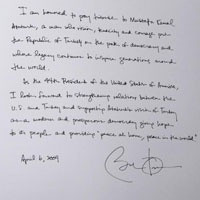 I am honored to pay tribute to Mustafa Kemal
Ataturk, a man whose vision, tenacity and courage put
the Republic of Turkey on the path of democracy and
whose legacy continues to inspire generations around
the world.
As the 44th President of the United States of America,
I look forward to strengthening relations between the
U.S. and Turkey and supporting Ataturk's vision of Turkey
as a modern and prosperous democracy giving hope
to its people and providing "peace at home, peace in the world."
April 6, 2009